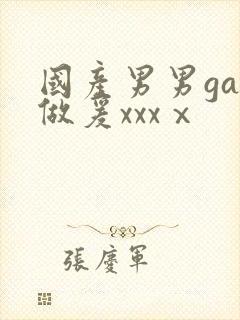 國產男男ga
做爰xxxⅹ
張慶軍